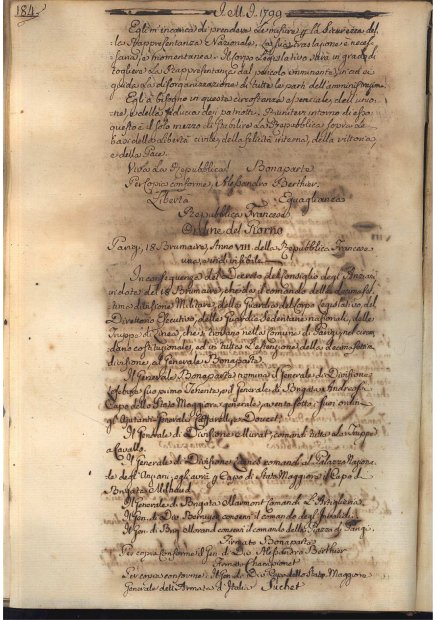 184.
I. M. I. 1799
Egli m'incarica di prendere le misure p la sicurezza del
la Rappresentanza Nazionale. La sua traslazione è neces
saria, e momentanea. Il Corpo Legislativo sarà in grado di
togliere la Rappresentanza dal pericolo imminente, in cui ci
guida la disorganizzazione di tutte le parti dell'amministrazione.
Egli à bisogno in questa circostanza essenziale, dell'unio
ne, e della fiducia dei patriotti. Riunitevi intorno di esso,
questo è il solo mezzo di stabilire la Repubblica sopra le
basi della libertà civile, della felicità interna, della vittoria,
e della Pace.
Viva la Repubblica! Bonaparte
Per copia conforme, Alessandro Berthier.
Libertà Eguaglianza
Repubblica Francese
Ordine del Giorno
Parigi, 18 Brumaire, Anno VIII. della Repubblica Francese
una, e indivisibile
In conseguenza del Decreto del Consiglio degl'Anziani
in data del 18 Brumaire, che dà il comando della decimaset
tima divisione Militare, della Guardia del corpo Legislativo, del
Direttorio Esecutivo, delle Guardie Sedentarie nazionali, delle
Truppe di linea, che si trovano nella Comune di Parigi, nel circon
dario costituzionale, ed in tutta l'estensione della decimasettima
divisione, al Generale Bonaparte.
Il Generale Bonaparte nomina il Generale di Divisione
Lefebvre suo primo Tenente, e il Generale di Brigata Andreossy
Capo dello Stato Maggiore generale,
gl'Ajutanti-Generali Caffarelli, e Doucet.
Il Generale di Divisione Murat, comandi tutte le Truppe
a Cavallo.
Il Generale di Divisione Lannes comandi al Palazzo Nazio
nale degl'Anziani, egli avrà p Capo di Stato Maggiore il Capo di
Brigata Milhaud.
Il Generale di Brigata Marmont comandi l'Artiglieria.
Il Gen. di Div. Berruyer conservi il comando degl'Invalidi.
Il Gen. di Brig. Morand conservi il comando della Piazza di Parigi.
Firmato Bonaparte
Per copia conforme il Gen. di Div. Alessandro Berthier
Firmato Championnet
Per copia conforme. Il Gen. di Div. Capo dello Stato Maggiore
Generale dell'Armata d'Italia Suchet